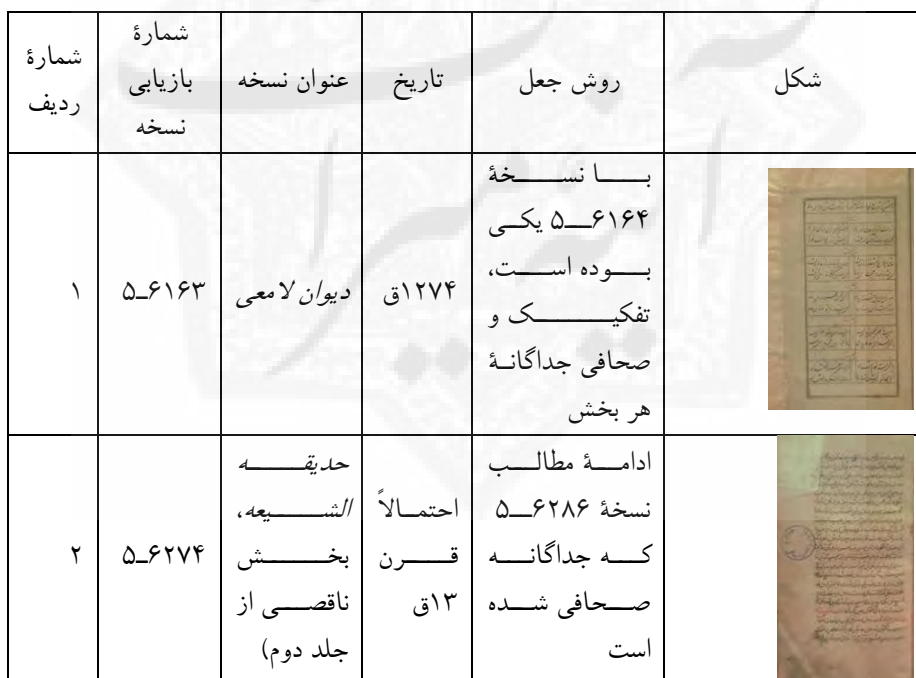 شمارۀ
ردیف
شمارۀ
بازیابی
نسخه
عنوان نسخه
تاریخ
روش جعل
شکل
۱
۵ـ۶۱۶۳
دیوان لامعی
۱۲۷۴ق
با نسخۀ
۵ـ۶۱۶۴ یکی
بوده است،
تفکیک و
صحافی جداگانۀ
هر بخش
۲
۵ـ۶۲۷۴
حدیقه
الشیعه،
بخش
ناقصی از
جلد دوم)
احتمالاً
قرن
۱۳ق
ادامۀ مطالب
نسخۀ ۶۲۸۶ـ۵
که جداگانه
صحافی شده
است